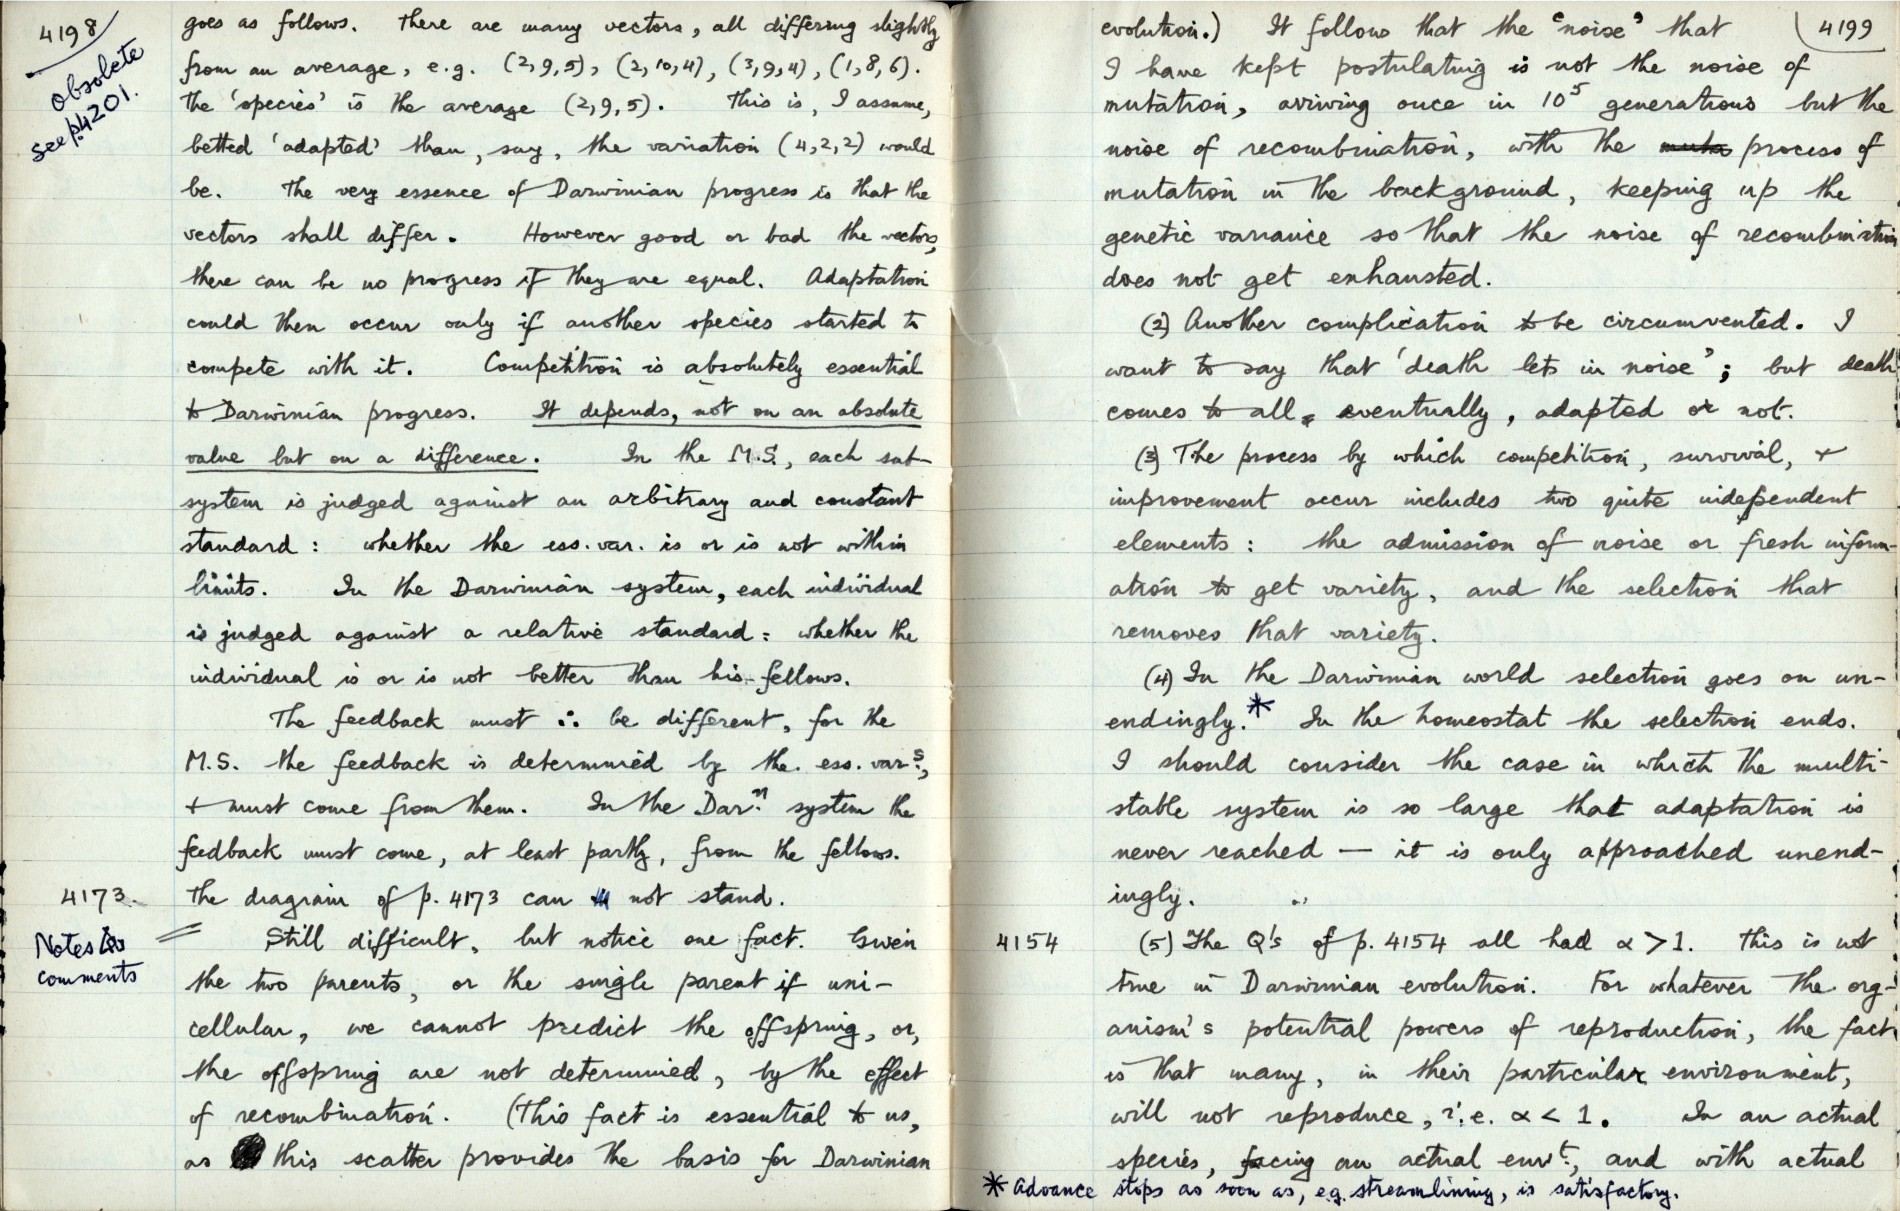 4198
Obsolete
see p.4201.
goes as follows. There are many vectors, all differing slightly
from an average, e.g. (2,9,5), (2,10,4), (3,9,4), (1,8,6).
The 'species' is the average (2,9,5). This is, I assume,
betted 'adapted' than, say, the variation (4,2,2) would
be. The very essence of Darwinian progress is that the
vectors shall differ. However good or bad the vectors,
there can be no progress if they are equal. Adaptation
could then occur only if another species started to
compete with it. Competition is absolutely essential
to Darwinian progress. It depends, not on an absolute
value but on a difference. In the M.S., each sub-
system is judged against an arbitrary and constant
standard: whether the ess. var. is or is not within
limits. In the Darwinian system, each individual
is judged against a relative standard: whether the
individual is or is not better than his fellows.
The feedback must ∴ be different, for the
M.S. the feedback is determined by the ess. vars.,
+ must come from them. In the Darn. system the
feedback must come, at least partly, from the fellows.
4173.
The diagram of p. 4173 can not stand.
Notes &
comments
Still difficult, but notice one fact. Given
the two parents, or the single parent if uni-
cellular, we cannot predict the offspring, or,
the offspring are not determined, by the effect
of recombination. (This fact is essential to us,
as this scatter provides the basis for Darwinian
4199
evolution.) It follows that the 'noise' that
I have kept postulating is not the noise of
mutation, arriving once in 10⁵ generations but the
noise of recombination, with the muta process of
mutation in the background, keeping up the
genetic variance so that the noise of recombination
does not get exhausted.
(2) Another complication to be circumvented. I
want to say that 'death lets in noise'; but death
comes to all, eventually, adapted or not.
(3) The process by which competition, survival, +
improvement occur includes two quite independent
elements: the admission of noise or fresh inform-
ation to get variety, and the selection that
removes that variety.
(4) In the Darwinian world selection goes on un-
endingly.* In the homeostat the selection ends.
I should consider the case in which the multi-
stable system is so large that adaptation is
never reached — it is only approached unend-
ingly.
4154
(5) The Q's of p. 4154 all had α > 1. This is not
true in Darwinian evolution. For whatever the org-
anism's potential powers of reproduction, the fact
is that many, in their particular environment,
will not reproduce, i.e. α < 1. In an actual
species, facing an actual envt., and with actual
* Advance stops as soon as, e.g. streamlining, is satisfactory.